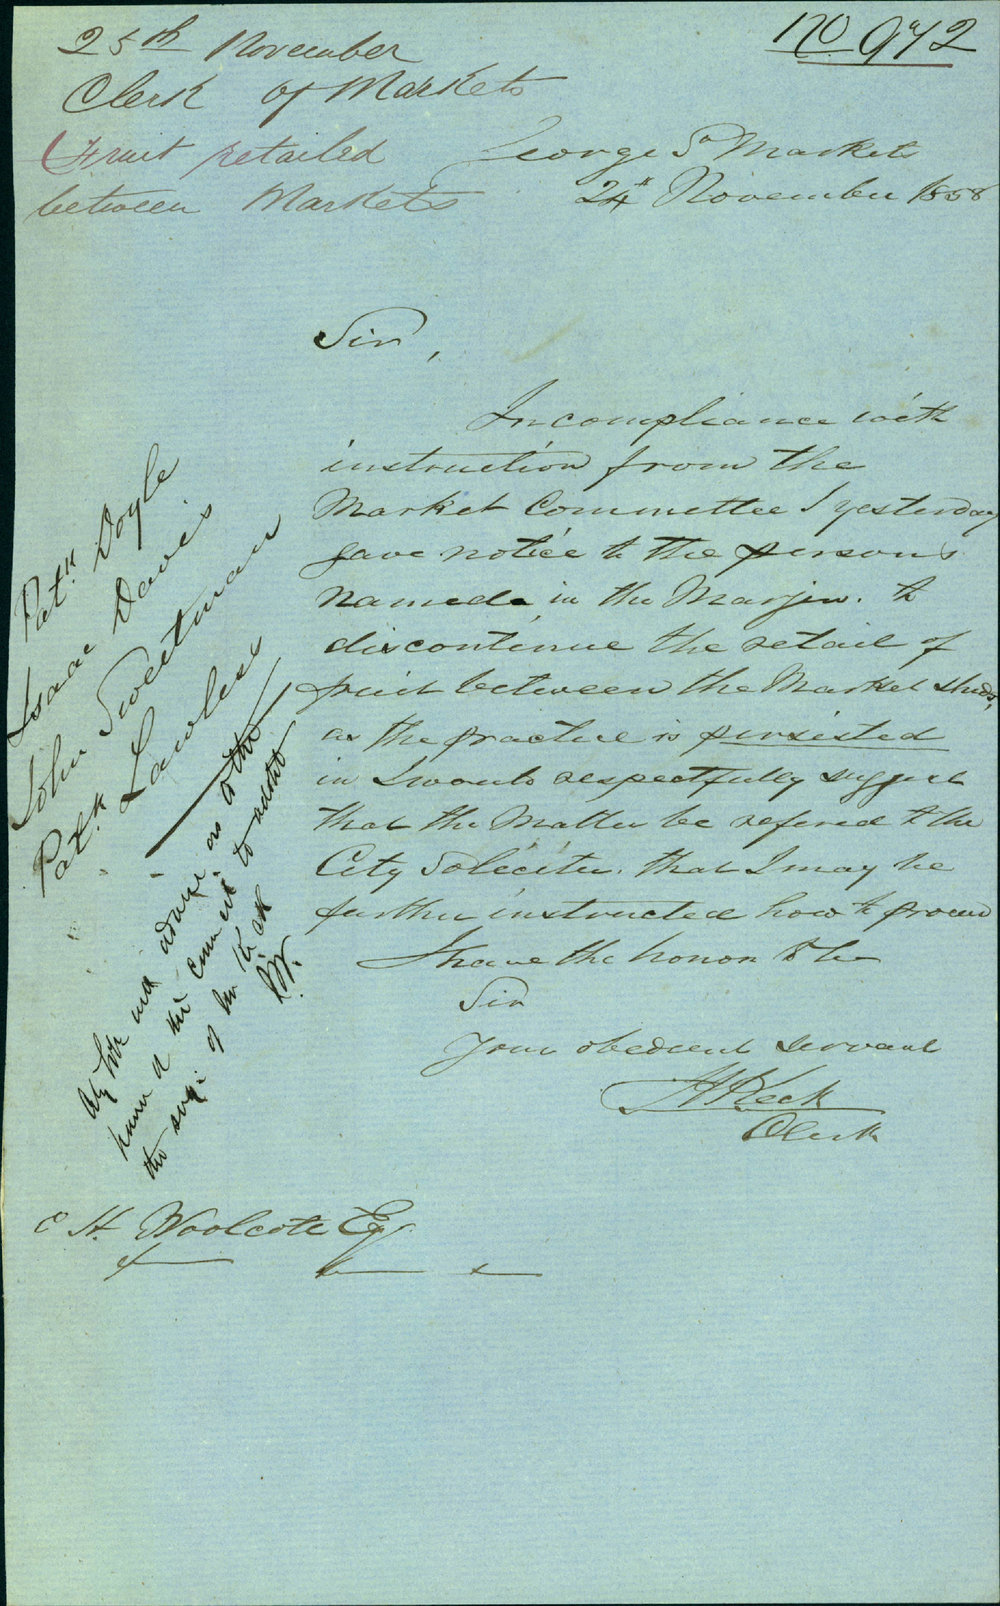 25th November
Clerk of Markets
Fruit retailed
between Markets
No 942
George St Markets
24th November 1858
Sir,
In compliance with
instruction from the
Market Committee I yesterday
gave notice to the persons
named in the Margin. to
discontinue the retail of
fruit between the Market sheds,
as the practice is persisted
in I would respectfully suggest
that the Matter be refered to the
City Soliciter. that I may be
further instructed how to proceed
I have the honor to be
Sir
Your obedient servant
H Keck
Clerk
Patk Doyle
Isaac Davis
John Sweetman
Patk Lawless
as to the
to
the
of
C H. Woolcott Esq